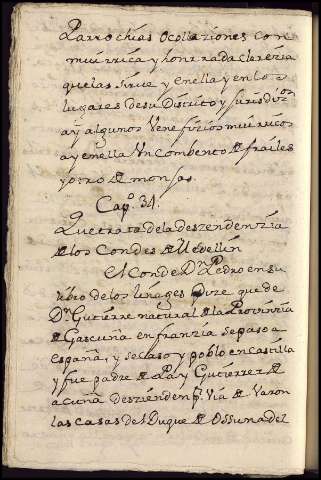 Parrochias o collaziones con
mui rrica y honrrada clerezia
que las sirue y en ella y en lo
lugares de su Distrito y jurisdizon
ay algunos Venefizios mui rricos
ay en ella Un combento de frailes
y otro de monjas.
Capo 34.
Que trata de la deszendenzia
de los Condes de Medellin
el Conde Dn Pedro en su
libro de los linages Dize que de
Dn Gutierre natural de la Provinzia
de Gascuña en franzia se paso a
españa, y se caso y poblo en castilla
y fue padre de Pay Gutierrez de
acuña deszienden pr Via de Varon
las casas del Duque de Ossuna del